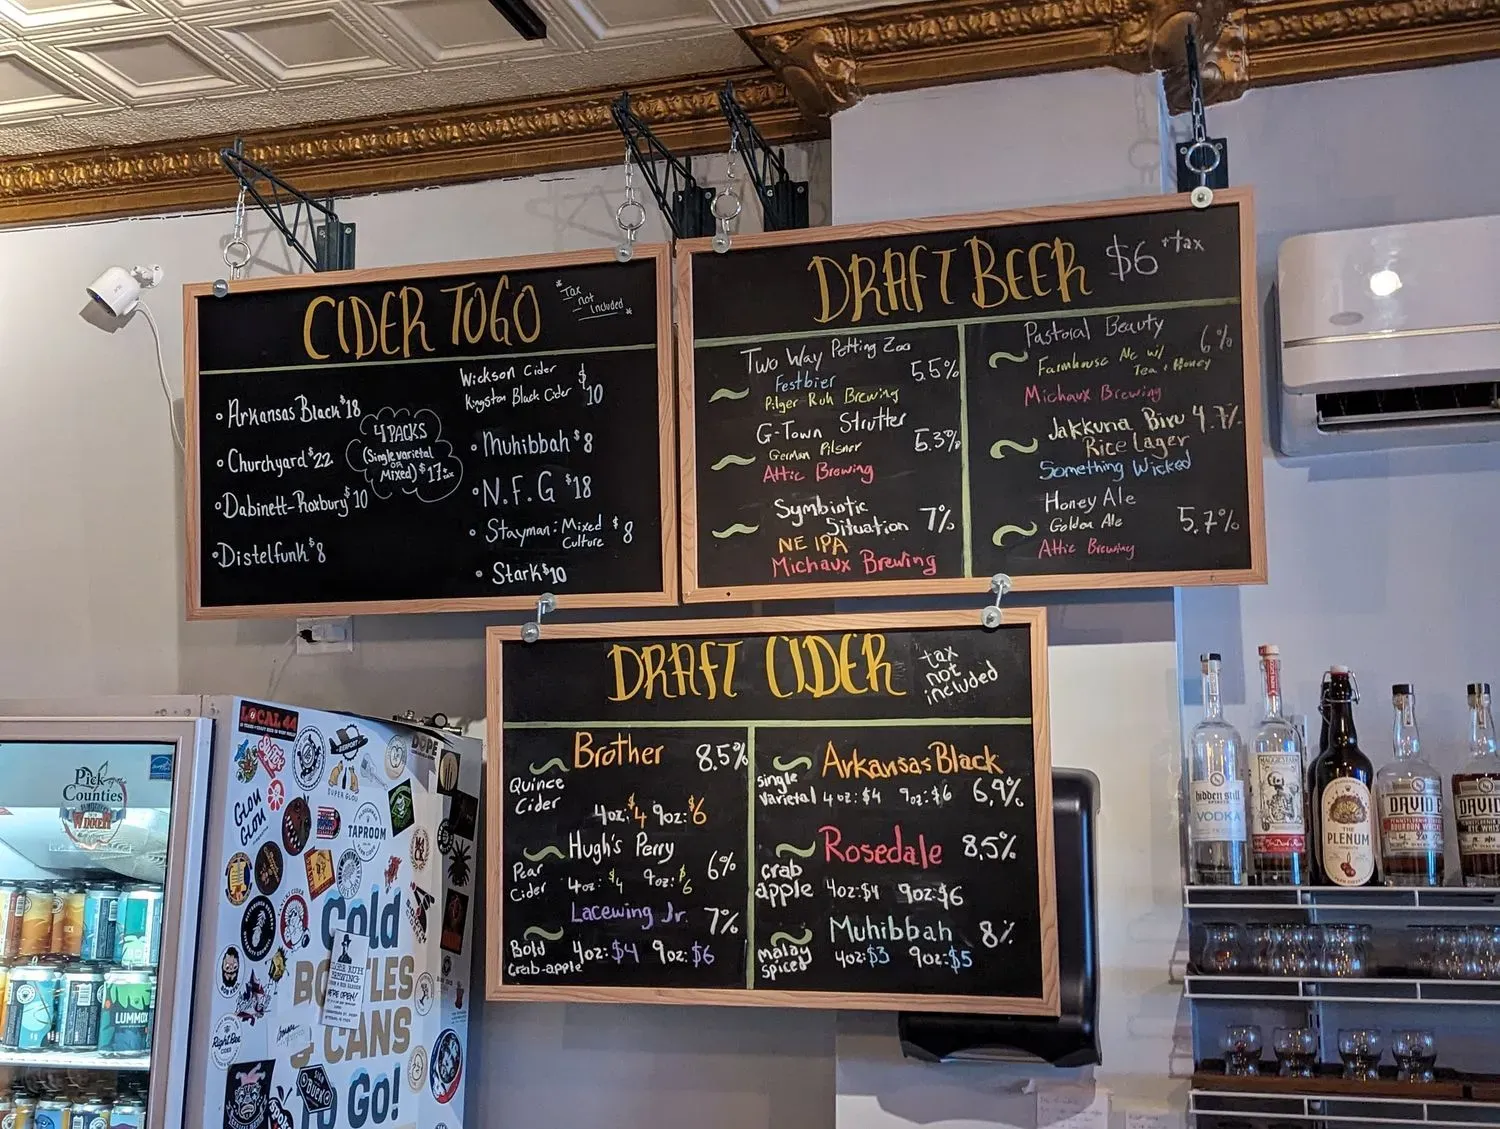 CIDER TO GO
*Tax
not
included*
Arkansas Black $18
Churchyard $22
Dabinett-Roxbury $10
Distelfunk $8
4 PACKS
(Single varietal
OR
Mixed) $17 +tax
Wickson Cider
Kingston Black Cider $10
Muhibbah $8
N.F.G $18
Stayman: Mixed
Culture $8
Stark $10
DRAFT BEER $6 +tax
Two Way Petting Zoo
Festbier 5.5%
Pilger Ruh Brewing
G-Town Strutter
German Pilsner 5.3%
Attic Brewing
Symbiotic
Situation 7%
NE IPA
Michaux Brewing
Pastoral Beauty 6%
Farmhouse Ale w/
Tea + Honey
Michaux Brewing
Jakkuna Biru 4.7%
Rice Lager
Something Wicked
Honey Ale
Golden Ale 5.7%
Attic Brewing
DRAFT CIDER
tax
not
included
Brother 8.5%
Quince
Cider
4oz: $4 9oz: $6
Hugh's Perry
Pear
Cider
4oz: $4 9oz: $6 6%
Lacewing Jr. 7%
Bold
Crab-apple
4oz: $4 9oz: $6
Arkansas Black
single
varietal 4oz: $4 9oz: $6 6.9%
Rosedale 8.5%
crab
apple
4oz: $4 9oz: $6
Muhibbah 8%
malay
spiced
4oz: $3 9oz: $5
Pick
Counties
WINNER
LOCAL 44
DOPE
SUPER GLOU
GLOU
GLOU
TAPROOM
Cold
BOTTLES
& CANS
TO GO!
RUH
BREWING
LUMMOX
hidden still
VODKA
THE
PLENUM
DAVID E
DAVID